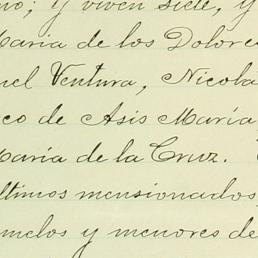 no; y viven siete, y
Maria de los Dolore
uel Ventura, Nicola
co de Asis María
María de la Cruz.
ltimos mensionados,
melos y menores de